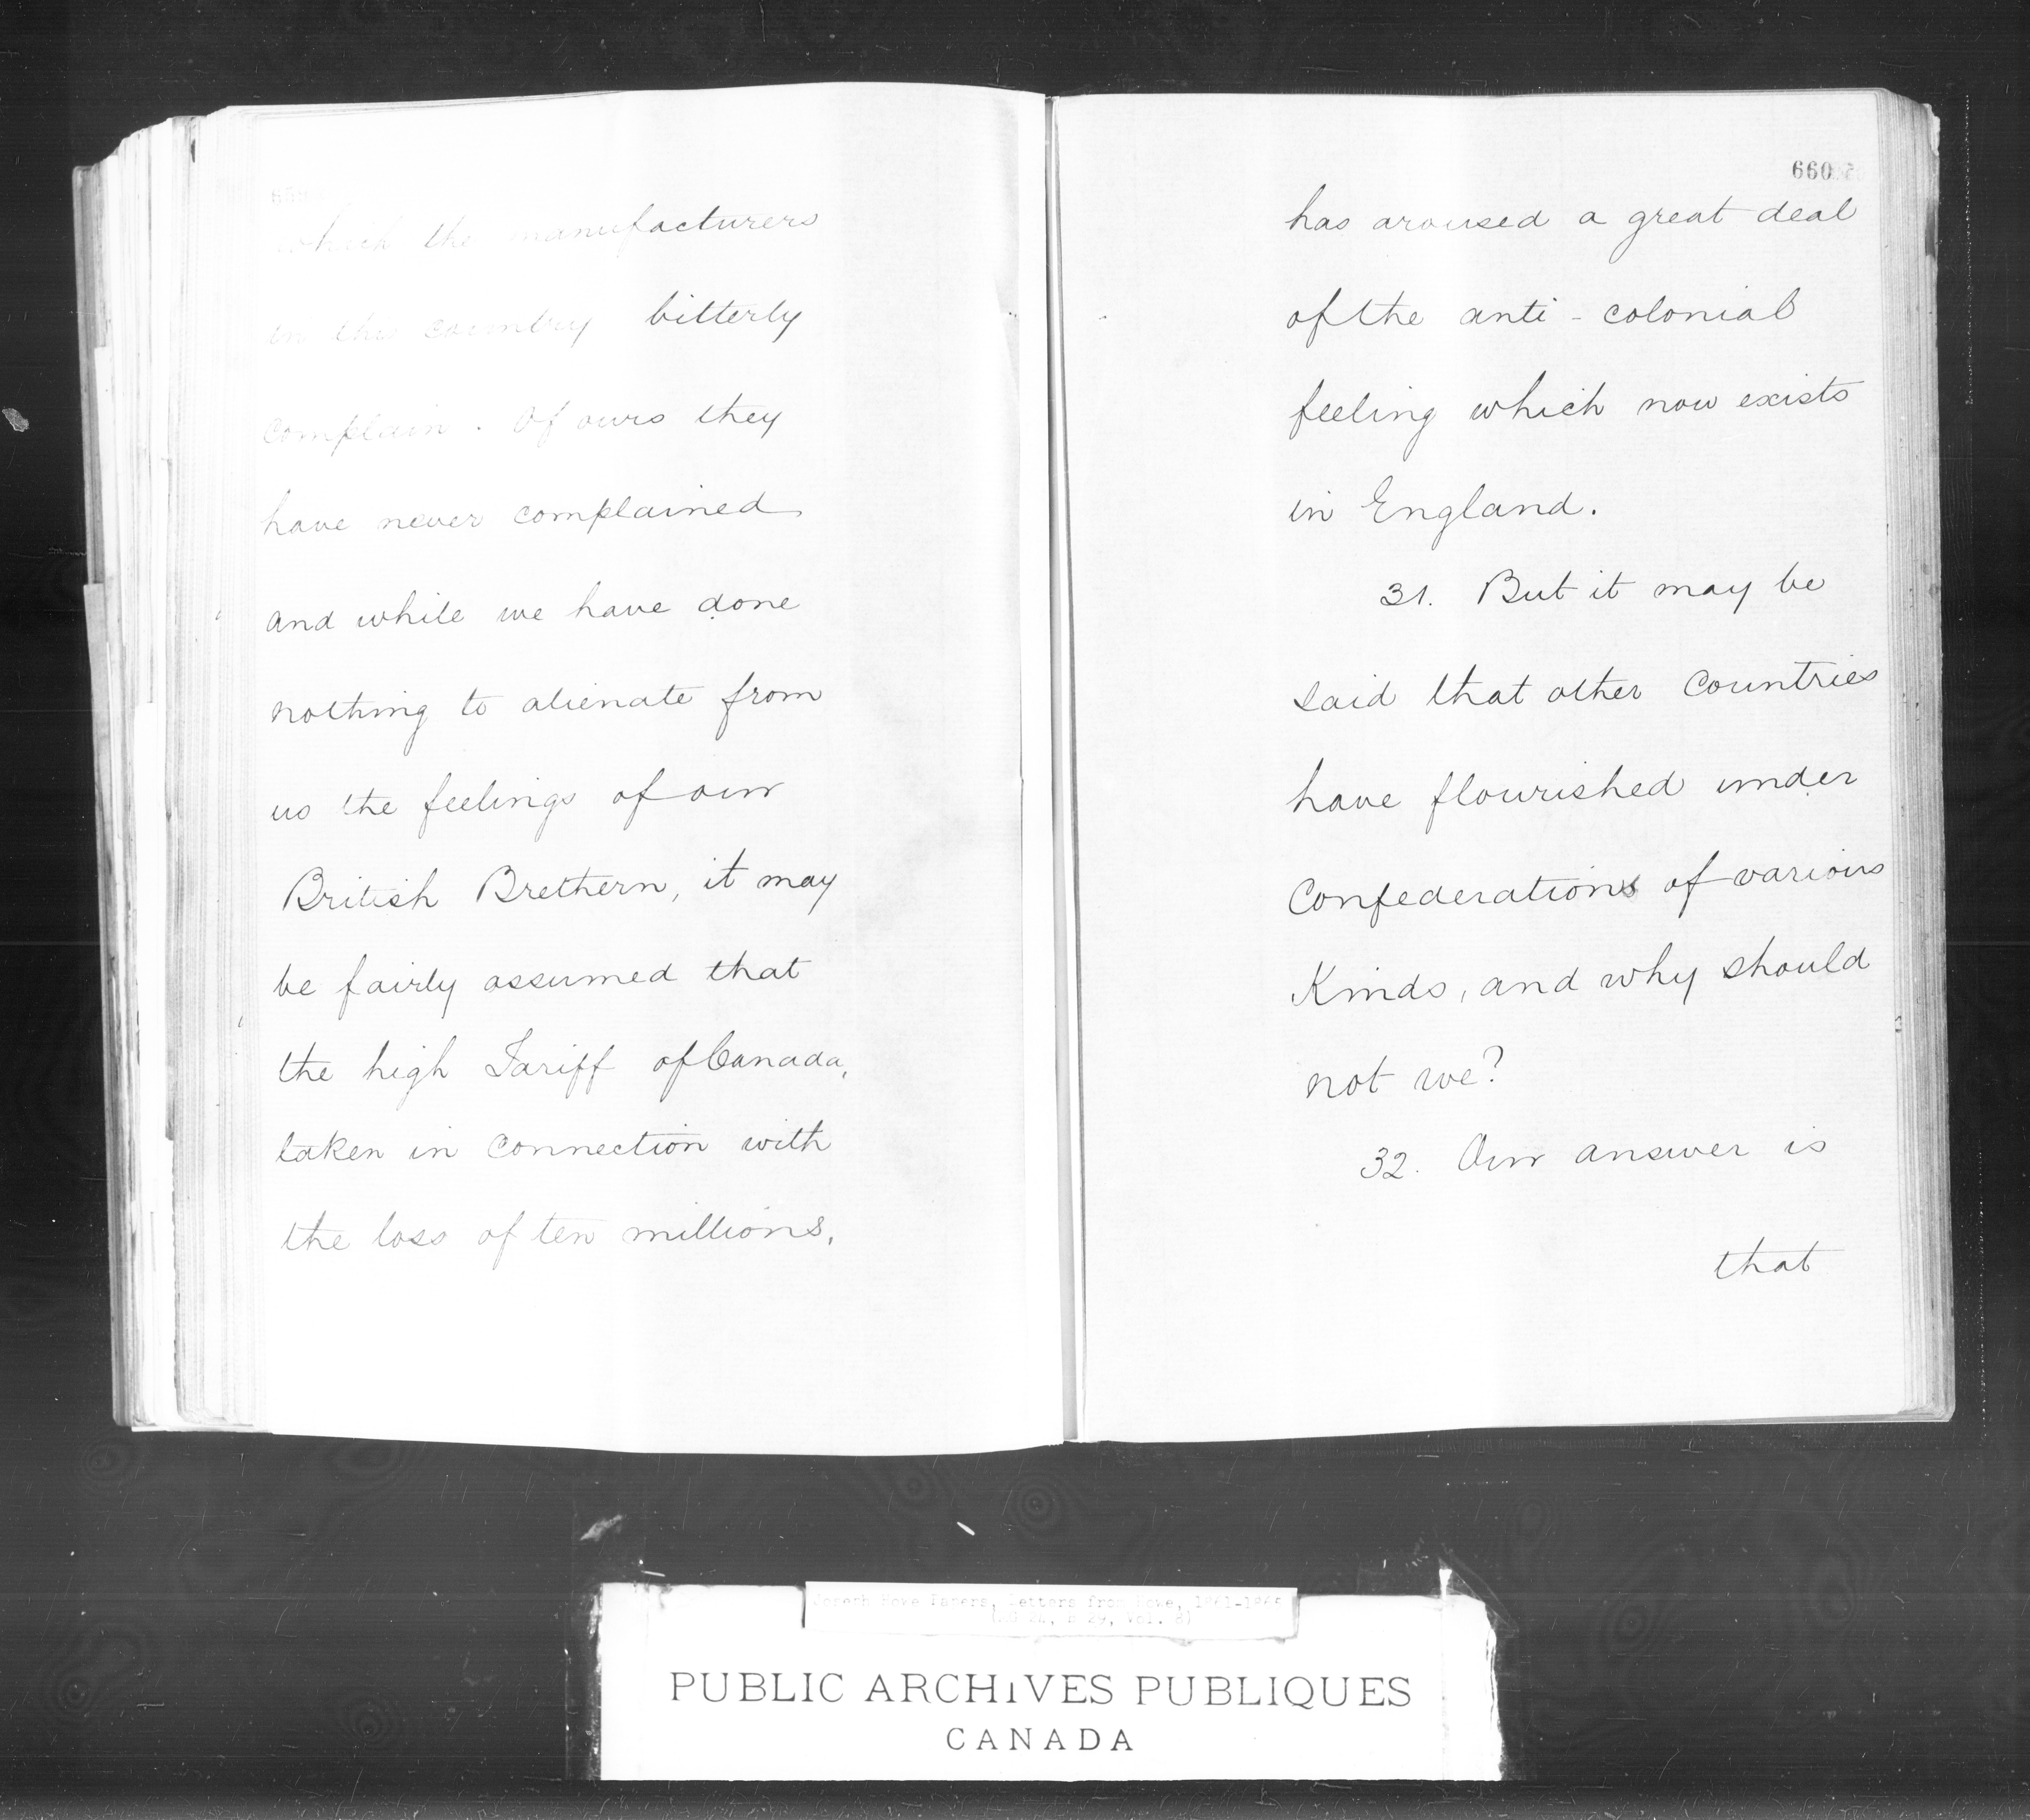 which the manufacturers
in this country bitterly
complain. Of ours they
have never complained,
and while we have done
nothing to alienate from
us the feelings of our
British Brethern, it may
be fairly assumed that
the high Tariff of Canada,
taken in connection with
the loss of ten millions,
660
has aroused a great deal
of the anti-colonial
feeling which now exists
in England.
31. But it may be
said that other countries
have flourished under
Confederations of various
Kinds, and why should
not we?
32. Our answer is
that
Joseph Howe Papers, Letters from Howe, 1861-1865
(MG 24, B 29, Vol. 8)
PUBLIC ARCHIVES PUBLIQUES
CANADA